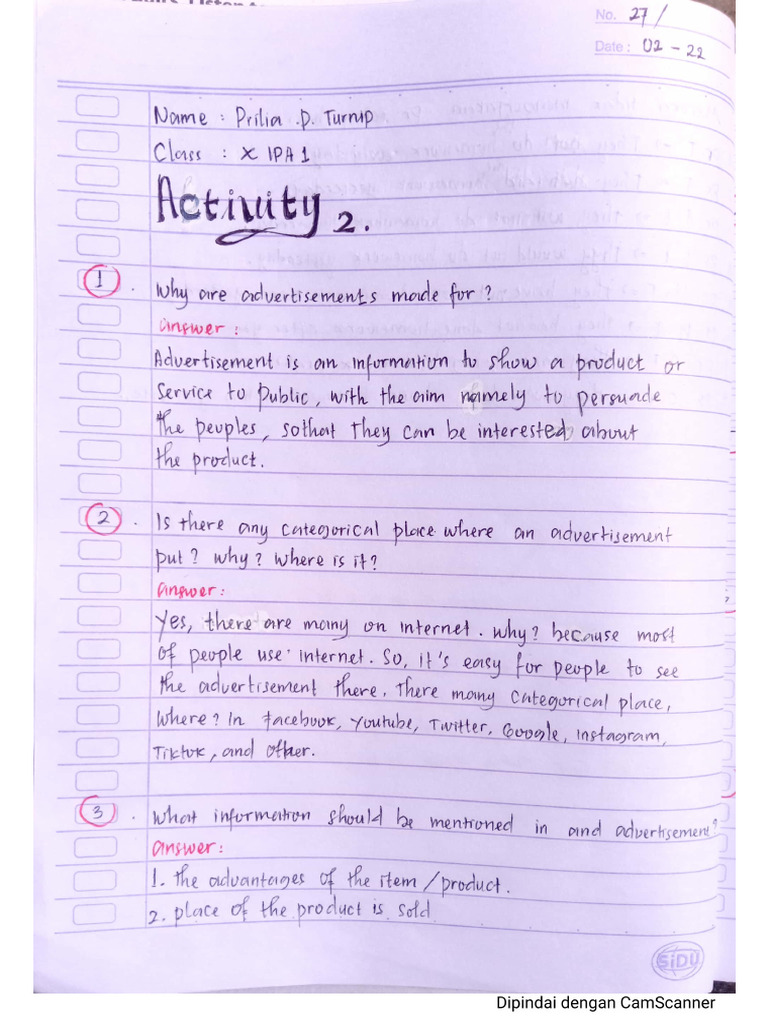 No. 27/
Date : 02 - 22
Name : Prilia .D. Turnip
Class : X IPA 1
Activity 2.
1 . Why are advertisements made for?
answer :
Advertisement is an information to show a product or
Service to public, with the aim namely to persuade
the peoples, sothat they can be interested about
the product.
2 . Is there any categorical place where an advertisement
put? why? where is it?
answer:
Yes, there are many on internet. why? because most
of people use internet. So, it's easy for people to see
the advertisement there. There many categorical place,
where? In facebook, Youtube, Twitter, Google, instagram,
Tiktok, and other.
3 . What information should be mentioned in and advertisement?
answer:
1. the advantages of the item / product.
2. place of the product is sold
SiDU
Dipindai dengan CamScanner